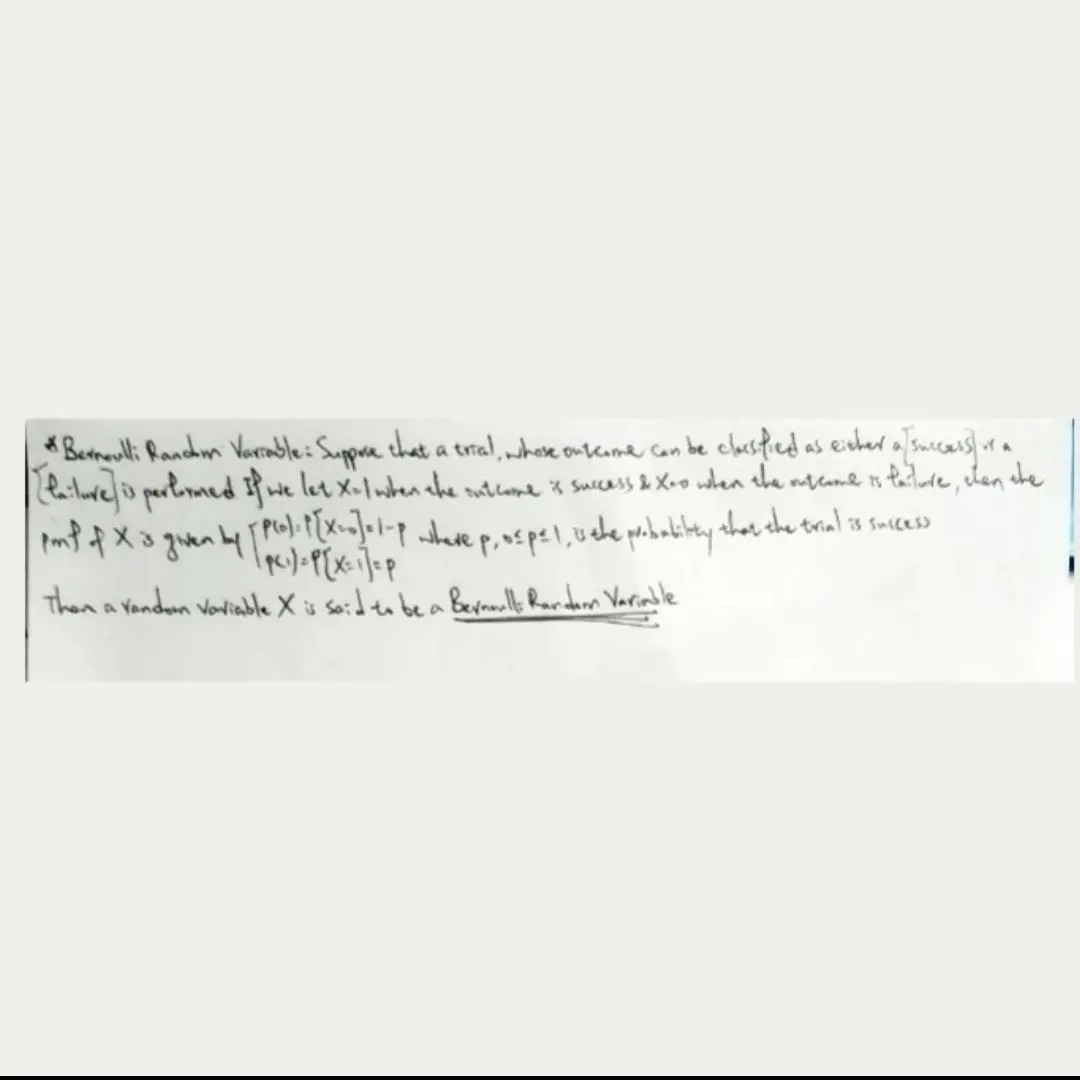 * Bernoulli Random Variable: Suppose that a trial, whose outcome can be classified as either a [success] or a
[failure] is performed If we let X=1 when the outcome is success & X=0 when the outcome is failure, then the
pmf of X is given by [ p(0)=P[X=0]=1-p where p, 0≤p≤1, is the probability that the trial is success
p(1)=P[X=1]=p
Then a random variable X is said to be a Bernoulli Random Variable